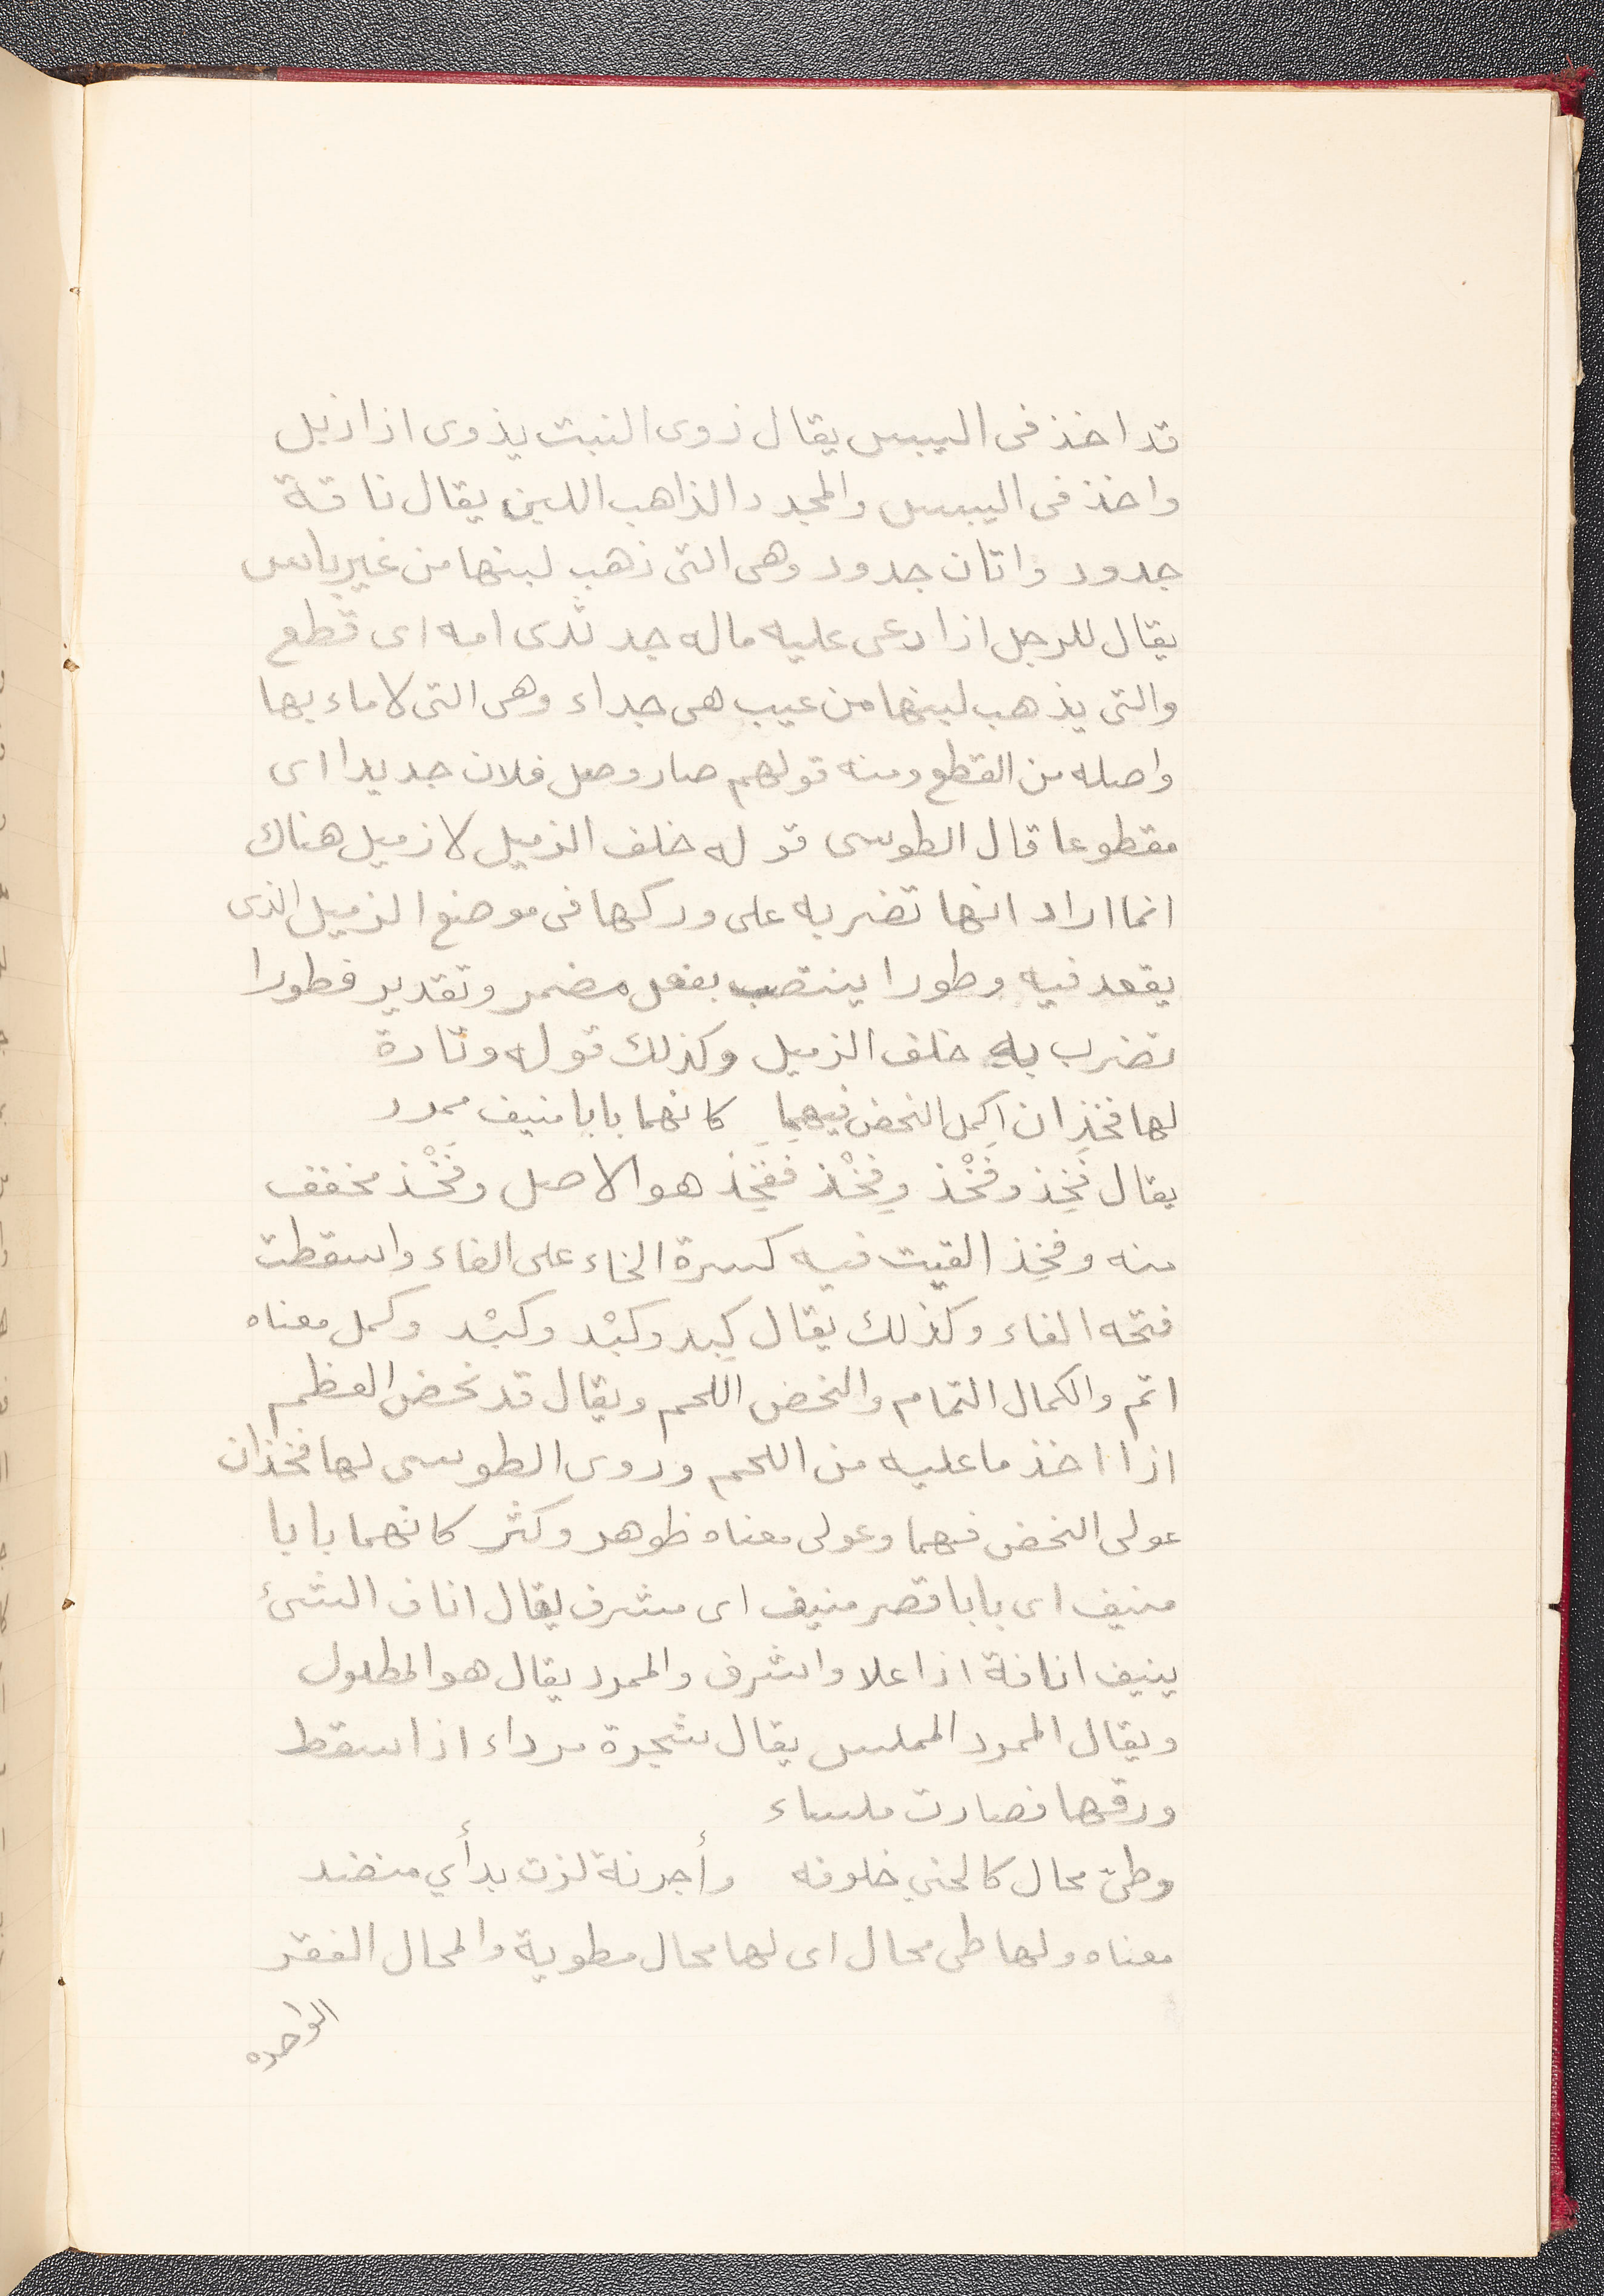 قد اخذ فى اليبس يقال ذوى النبت يذوى اذا ذبل
واخذ فى اليبس والمجدد الذاهب اللبن يقال ناقة
جدود واتان جدود وهى التى ذهب لبنها من غير باس
يقال للرجل اذا دعى عليه ماله جد ثدى امه اى قطع
والتى يذهب لبنها من عيب هى جداء وهى التى لا ماء بها
واصله من القطع ومنه قولهم صار وصل فلان جديدا اى
مقطوعا قال الطوسى قوله خلف الزميل لا زميل هناك
انما اراد انها تضرب به على وركها فى موضع الزميل الذى
يقعد فيه وطورا ينتصب بفعل مضمر وتقدير فطورا
تضرب به خلف الزميل وكذلك قوله وتارة
لها فَخِذان اكمل النحض فيهما كانهما بابا منيف ممرد
يقال فَخِذ وفَخْذ وفِخْذ ففَخِذ هو الاصل وفَخْذ مخفف
منه وفخِذ القيت فيه كسرة الخاء على الفاء واسقطت
فتحه الفاء وكذلك يقال كَبِد وكَبْد وكِبْد وكمل معناه
اتم والكمال التمام والنحض اللحم ويقال قد نحض العظم
اذا اخذ ما عليه من اللحم وروى الطوسى لها فخذان
عولى النحض فيهما وعولى معناه ظوهر وكثر كانهما بابا
منيف اى بابا قصر منيف اى مشرف يقال اناف الشئ
ينيف انافة اذا علا واشرف والممرد يقال هو المطول
ويقال الممرد المملس يقال شجرة مرداء اذا سقط
ورقها فصارت ملساء
وطىّ محال كالحنيِ خلوفه وأجرنة لزت بدأيٍ منضد
معناه ولها طى محال اى لها محال مطوية والمحال الفقر
الواحده